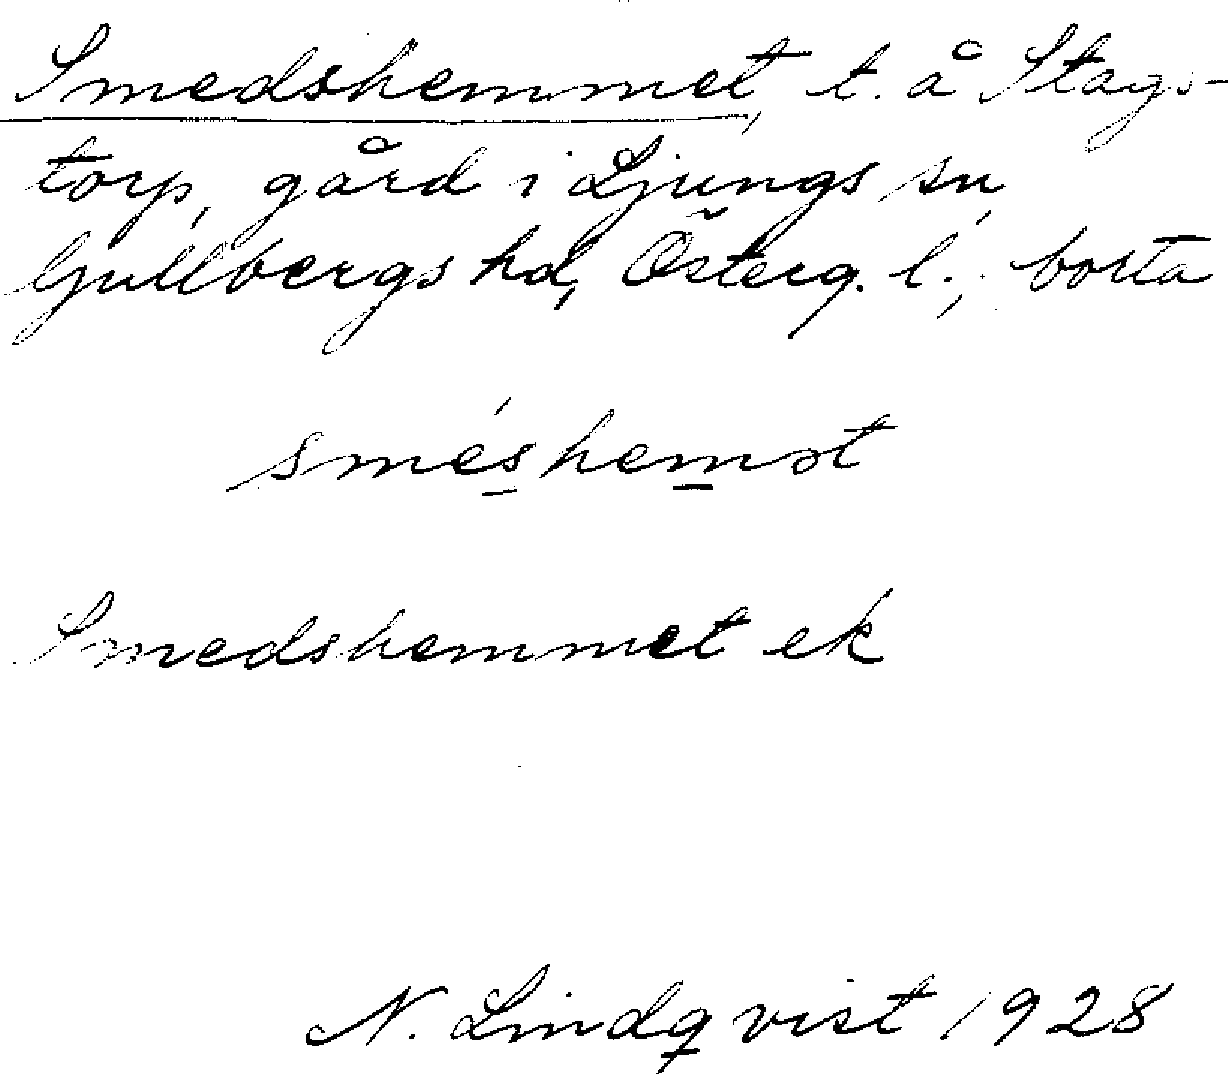 Smedshemmet, t. å Stags-
torp, gård i Ljungs sn,
Gullbergs hd, Österg. l.; borta
sméshemət
Smedshemmet ek
N. Lindqvist 1928